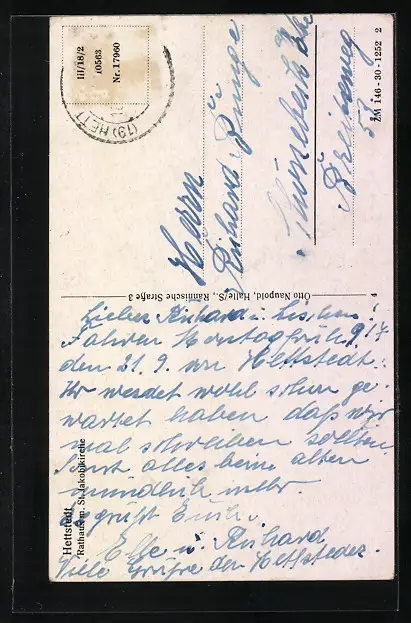 III/18/2
10563
Nr. 17960
(19) HETT
Herrn
Richard
Schönebeck Elbe
Breiteweg
53
ZM 146-30-1252 2
Otto Naupold, Halle/S., Rännische Straße 3
4
Lieber Richard u. Lischen!
Fahren Montag früh 9
den 21. 9. von Hettstedt.
Ihr werdet wohl schon ge-
wartet haben daß wir
mal schreiben sollten.
Sonst alles beim alten
mündlich mehr.
Es grüßt Euch
Else u. Richard
Viele Grüße der Hettstedter.
Hettstedt
Rathaus m. St. Jakobikirche